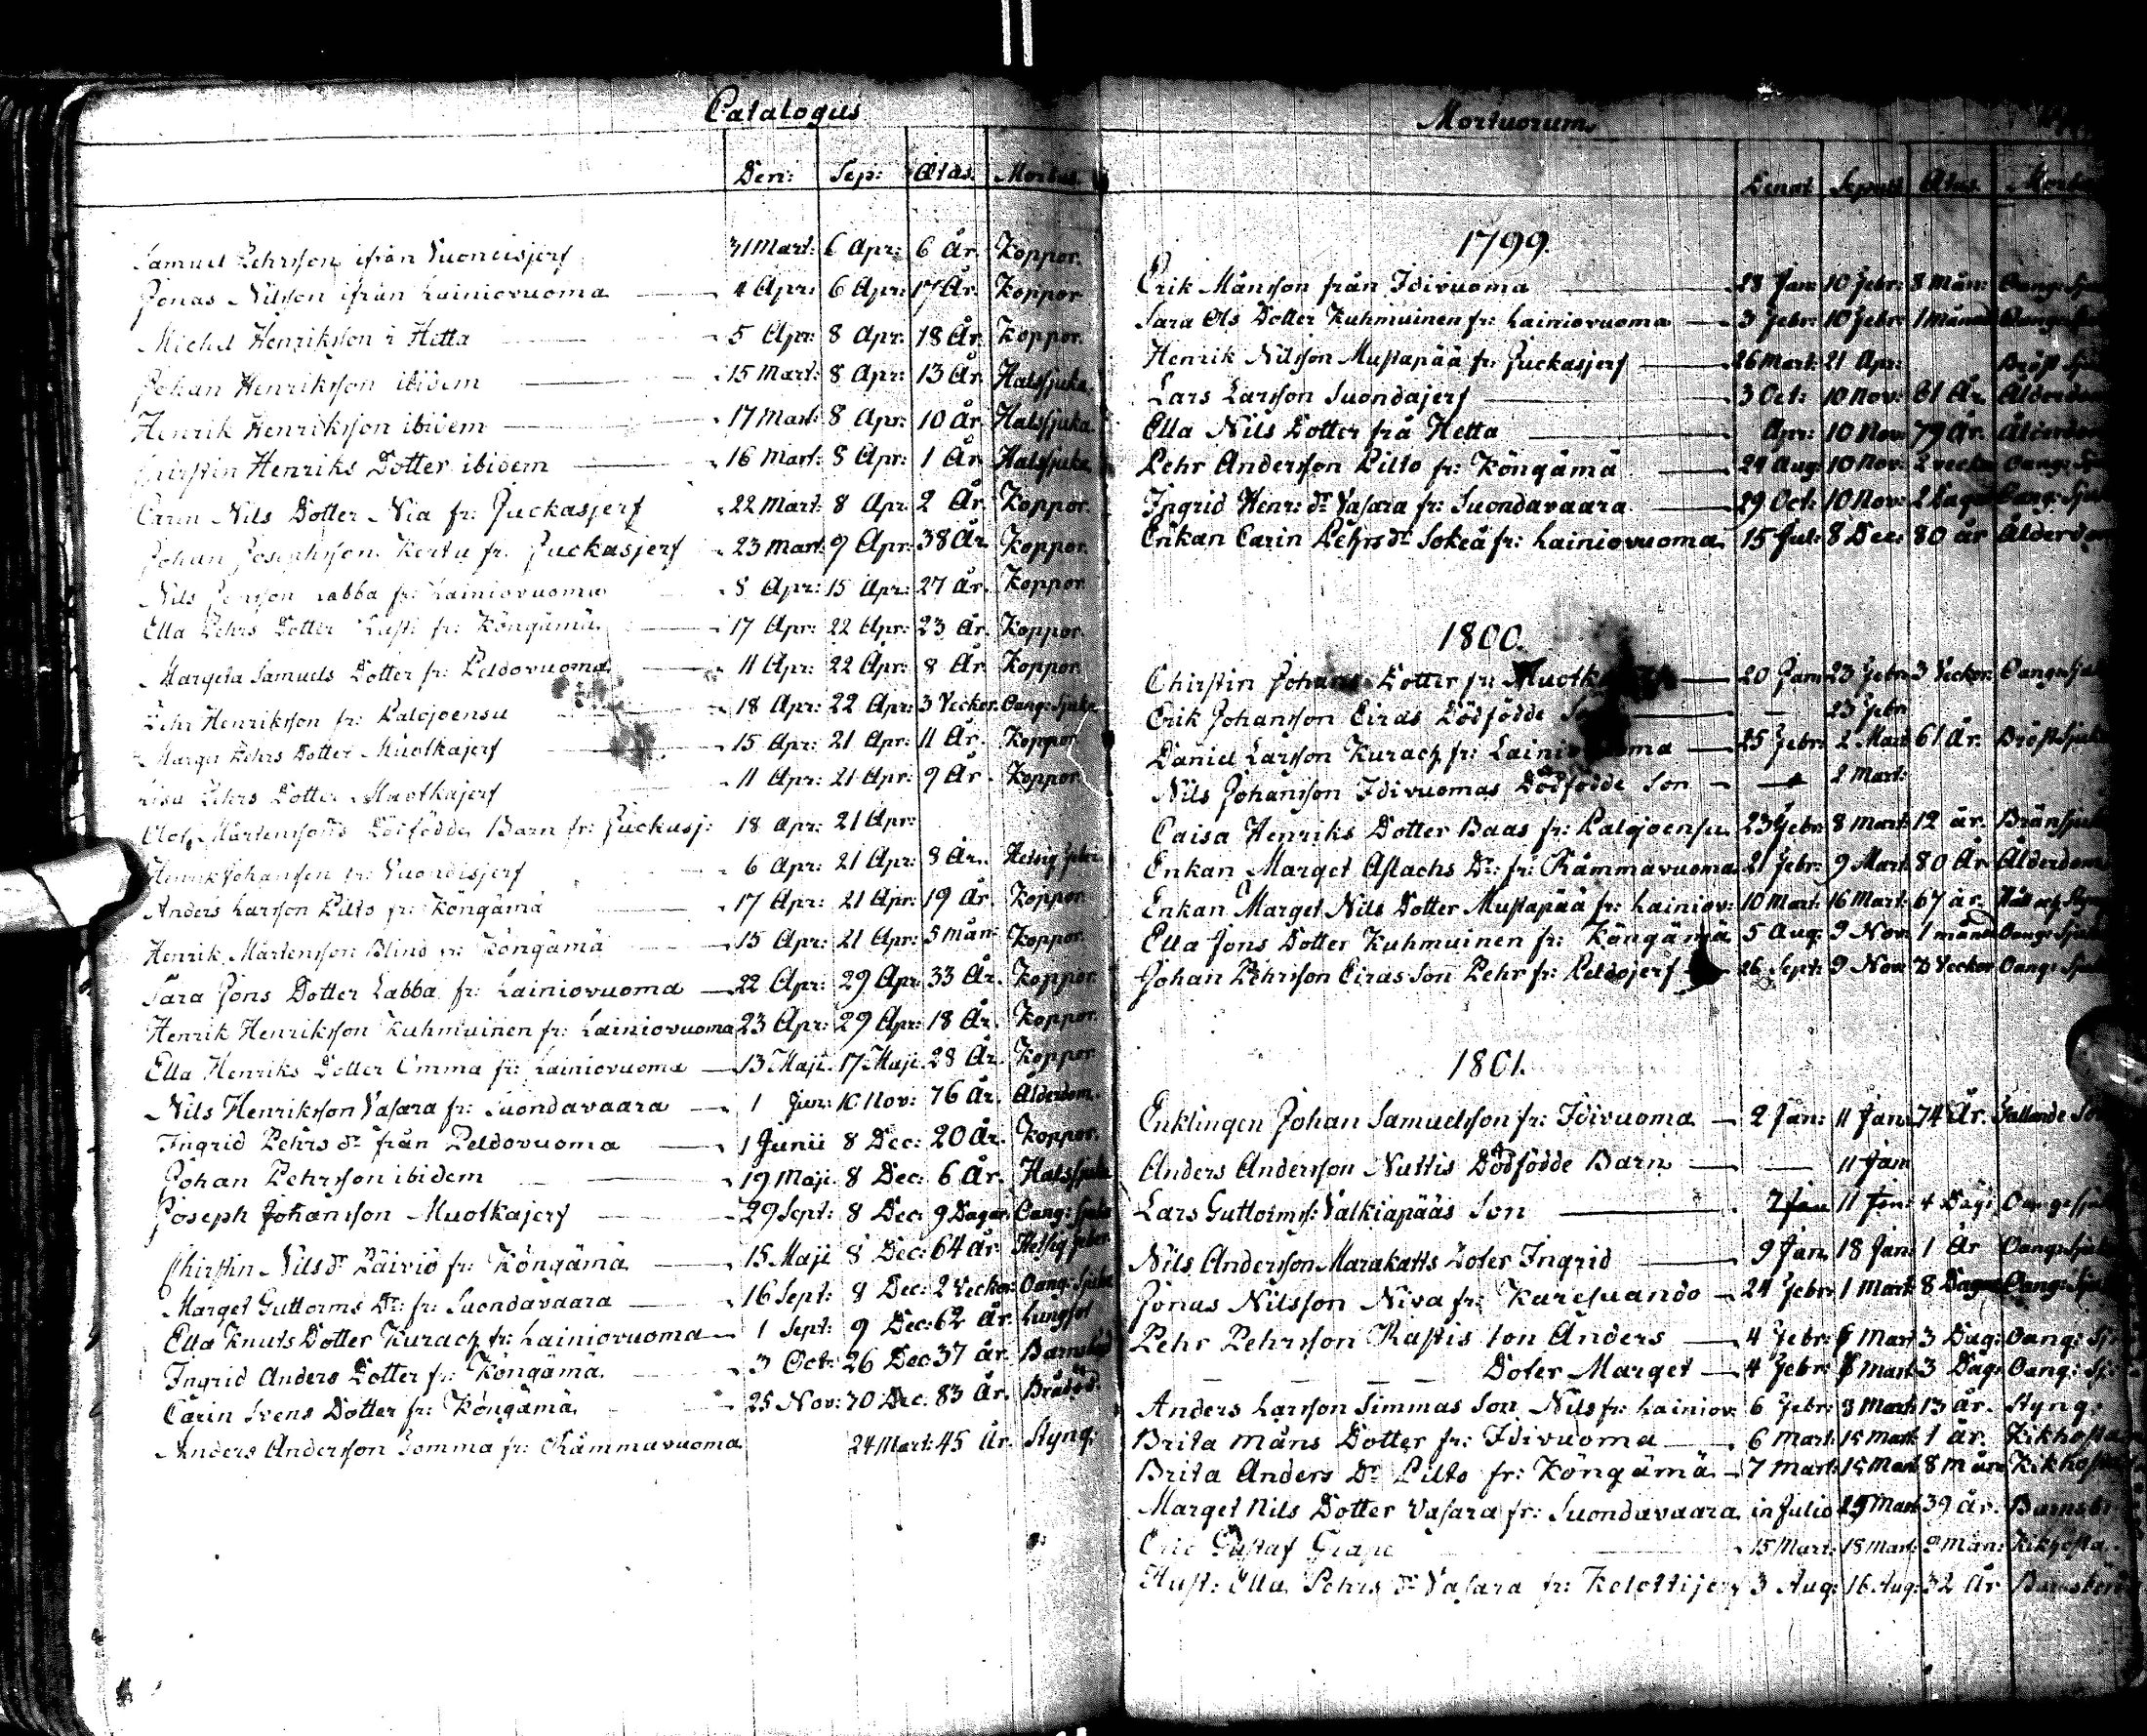 Catalogus
Den: Sep: Ætas. Morbus.
Samuel Pehrsson ifrån Vuoncisjerf 31 Mart: 6 Apr: 6 År. Koppor.
Jonas Nilsson ifrån Lainiovuoma 4 Apr: 6 Apr: 17 År. Koppor.
Michel Henriksson i Hetta 5 Apr: 8 Apr: 18 År. Koppor.
Johan Henriksson ibidem 15 Mart: 8 Apr: 13 År. Halssjuka.
Henrik Henriksson ibidem 17 Mart: 8 Apr: 10 År. Halssjuka
Chirstin Henriks Dotter ibidem 16 Mart: 8 Apr: 1 År. Halssjuka
Carin Nils Dotter Nia fr: Juckasjerf 22 Mart: 8 Apr: 2 År. Koppor.
Johan Josephsson Kertu fr: Juckasjerf 23 Mart: 9 Apr: 38 År. Koppor.
Nils Jonsson Labba fr: Lainiovuoma 8 Apr: 15 Apr: 27 År. Koppor.
Ella Pehrs Dotter fr: Köngämä. 17 Apr: 22 Apr: 23 År. Koppor.
Margeta Samuels Dotter fr: Peldovuoma. 11 Apr: 22 Apr: 8 År. Koppor.
Pehr Henriksson fr: Palojoensu 18 Apr: 22 Apr: 3 Veckor. Oang: Sjuka
Marget Pehrs Dotter Muotkajerf 15 Apr: 21 Apr: 11 År. Koppor
Lisa Pehrs Dotter Muotkajerf 11 Apr: 21 Apr: 9 År. Koppor
Olof Mårtenssons Dödfödde Barn fr: Juckasj: 18 Apr: 21 Apr:
Henrik Johansson fr: Vuoncisjerf 6 Apr: 21 Apr: 8 År. Hetsig feber
Anders Larsson Pilto fr: Köngämä 17 Apr: 21 Apr: 19 År. Koppor
Henrik Mårtensson Blind fr: Köngämä 15 Apr: 21 Apr: 5 Mån: Koppor.
Sara Jons Dotter Labba fr: Lainiovuoma 22 Apr: 29 Apr: 33 År. Koppor.
Henrik Henriksson Kuhmuinen fr: Lainiovuoma 23 Apr: 29 Apr: 18 År. Koppor.
Ella Henriks Dotter Omma fr: Lainiovuoma 13 Maji. 17 Maji. 28 År. Koppor
Nils Henriksson Vasara fr: Suondavaara 1 Jun: 10 Nov: 76 År. Ålderdom.
Ingrid Pehrs dr från Peldovuoma 1 Junii 8 Dec: 20 År. Koppor.
Johan Pehrsson ibidem 19 Maji 8 Dec: 6 År. Halssjuka
Joseph Johansson Muotkajerf 29 Sept: 8 Dec: 9 Dagar. Oang: Sjuka
Chirstin Nils dr Päiviö fr: Köngämä 15 Maji 8 Dec: 64 År. Hetsig feber
Marget Guttorms Dr: fr: Suondavaara 16 Sept: 8 Dec: 2 Veckor. Oang: Sjuka
Ella Knuts Dotter Kurack fr: Lainiovuoma 1 Sept: 9 Dec: 62 År. Lungsot
Ingrid Anders Dotter fr: Köngämä. 3 Oct: 26 Dec: 37 År.
Carin Svens Dotter fr: Köngämä. 25 Nov: 30 Dec: 83 År. Brådöd.
Anders Andersson Somma fr: Råmmavuoma 24 Mart: 45 År. Styng:
Mortuorum.
Denat Sepult Ætas. Morbus
1799.
Erik Månsson från Idivuoma 28 Jan: 10 Febr: 8 Mån: Oang: Sjuka
Sara Ols Dotter Kuhmuinen fr: Lainiovuoma 3 Febr: 10 Febr: 1 Månad
Henrik Nilsson Mustapää fr: Juckasjerf 26 Mart: 21 Apr: Bröst Sjuka
Lars Larsson Suondajerf 3 Oct: 10 Nov: 81 År. Ålderdom
Ella Nils Dotter frå Hetta Apr: 10 Nov: 79 År. Ålderdom
Pehr Andersson Pilto fr: Köngämä 24 Aug: 10 Nov: 2 veckor Oang: Sjuka
Ingrid Henr: dr Vasara fr: Suondavaara 29 Oct: 10 Nov: 2 Dagar Oang: Sjuka
Enkan Carin Pehrs dr Sokeä fr: Lainiovuoma. 15 Jul: 8 Dec: 80 år Ålderdom
1800.
Chirstin Johans Dotter fr: 20 Jan: 23 Febr: 3 Veckor. Oang: Sjuka
Erik Johansson Eiras Dödfödde 23 Febr:
Daniel Larsson Kurack fr: 25 Febr: 2 Mart: 61 År. Bröst Sjuka
Nils Johansson Idivuomas Dödfödde Son 2 Mart:
Caisa Henriks Dotter Baas fr: Palojoensu 23 Febr: 8 Mart: 12 år. Brånsjuka
Enkan Marget Aslachs Dr: fr: Råmmavuoma. 21 Febr: 9 Mart: 80 År Ålderdom
Enkan Marget Nils Dotter Mustapää fr: Lainiov: 10 Mart: 16 Mart: 67 år. Håll och Styng
Ella Jons Dotter Kuhmuinen fr: Köngämä 5 Aug: 9 Nov: 1 månad Oang: Sjuka
Johan Pehrsson Eiras Son Pehr fr: Peldojerf 26 Sept: 9 Nov: Veckor Oang: Sjuka
1801.
Enklingen Johan Samuelsson fr: Idivuoma 2 Jan: 11 Jan: 74 År. Fallande
Anders Andersson Nuttis Dödfödde Barn 11 Jan
Lars Guttormss: Valkiapääs Son 7 Jan 11 Jan: 4 Dag: Oang: sjuka
Nils Andersson Marakatts Doter Ingrid 9 Jan 18 Jan: 1 År Oang: Sjuka
Jonas Nilsson Niva fr: Karesuando 24 Febr: 1 Mart: 8 Dagar Oang: Sjuka
Pehr Pehrsson Rastis son Anders 4 Febr: 8 Mart: 3 Dag: Oang: Sj:
Doter Marget 4 Febr: 8 Mart: 3 Dag: Oang: Sj:
Anders Larsson Simmas Son Nils fr: Lainiov: 6 Febr: 8 Mart: 13 år. Styng.
Brita Måns Dotter fr: Idivuoma 6 Mart: 15 Mart: 1 år. Kikhosta
Brita Anders Dr Pilto fr: Köngämä 7 Mart: 15 Mart: 8 mån: Kikhosta
Marget Nils Dotter Vasara fr: Suondavaara in Julio 15 Mart: 39 år.
Eric Gustaf Grape 15 Mart: 18 Mart: 2 mån: Kikhosta.
Hust: Ella Pehrs dr Vasara fr: 3 Aug: 16 Aug: 32 År